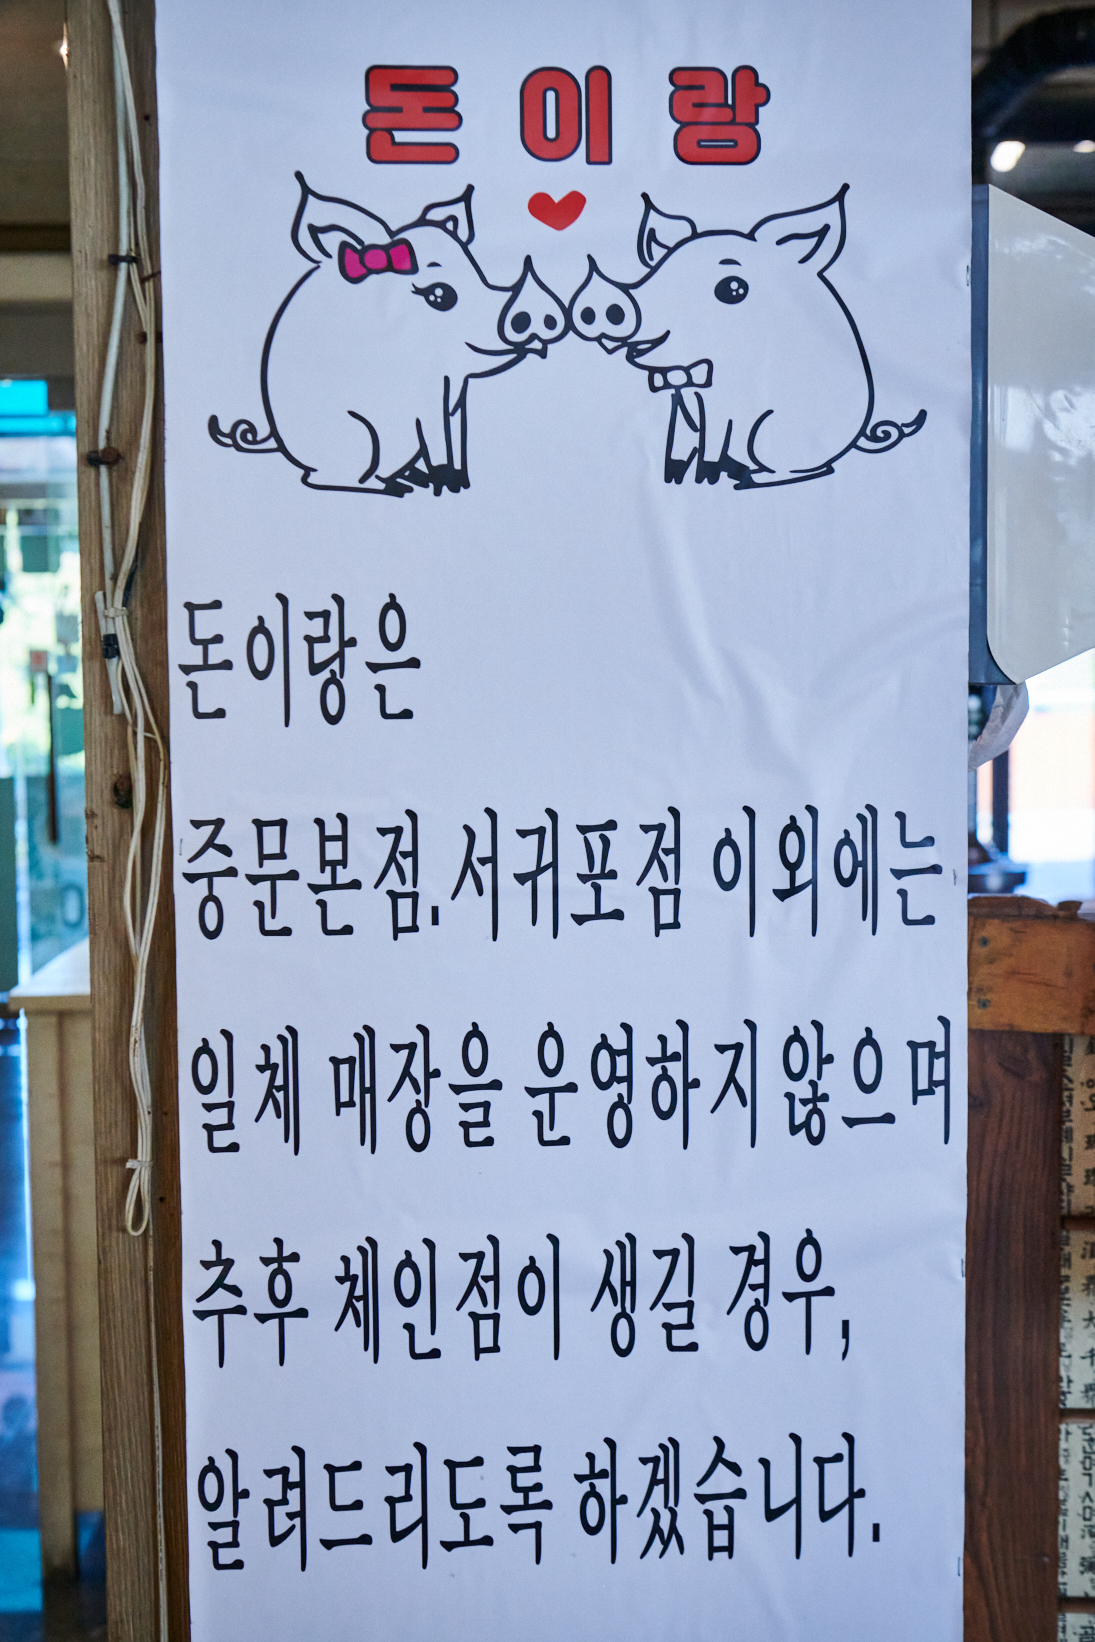 돈이랑
돈이랑은
중문본점.서귀포점 이외에는
일체 매장을 운영하지않으며
추후 체인점이 생길 경우,
알려드리도록 하겠습니다.